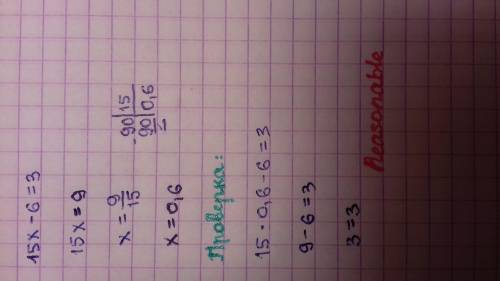 15x - 6 = 3
15x = 9
x = 9/15
-90|15
90|0,6
x = 0,6
Проверка:
15 · 0,6 - 6 = 3
9 - 6 = 3
3 = 3
Reasonable